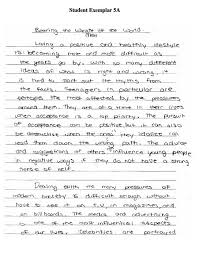 Student Exemplar 5A
Bearing the Weight of the World
Living a positive and healthy lifestyle
is becoming more and more difficult as
the years go by. With so many different
ideas of what is right and wrong, it
is hard to sort out the myths from
the facts. Teenagers in particular are
perhaps the most affected by the pressures
around them. They are at a time in their lives
when acceptance is a top priority. The pursuit
of acceptance can be positive but it can also
be destructive when the ones they idolize can
lead them down the wrong path. The advice
and suggestions of others influence young people
in negative ways if they do not have a strong
sense of self.
Dealing with the many pressures of
modern society is difficult enough without
have to see it on T.V., in magazines, and
on billboards. The media and advertising
is one of the most influential aspects
of our lives. Celebrities are portrayed